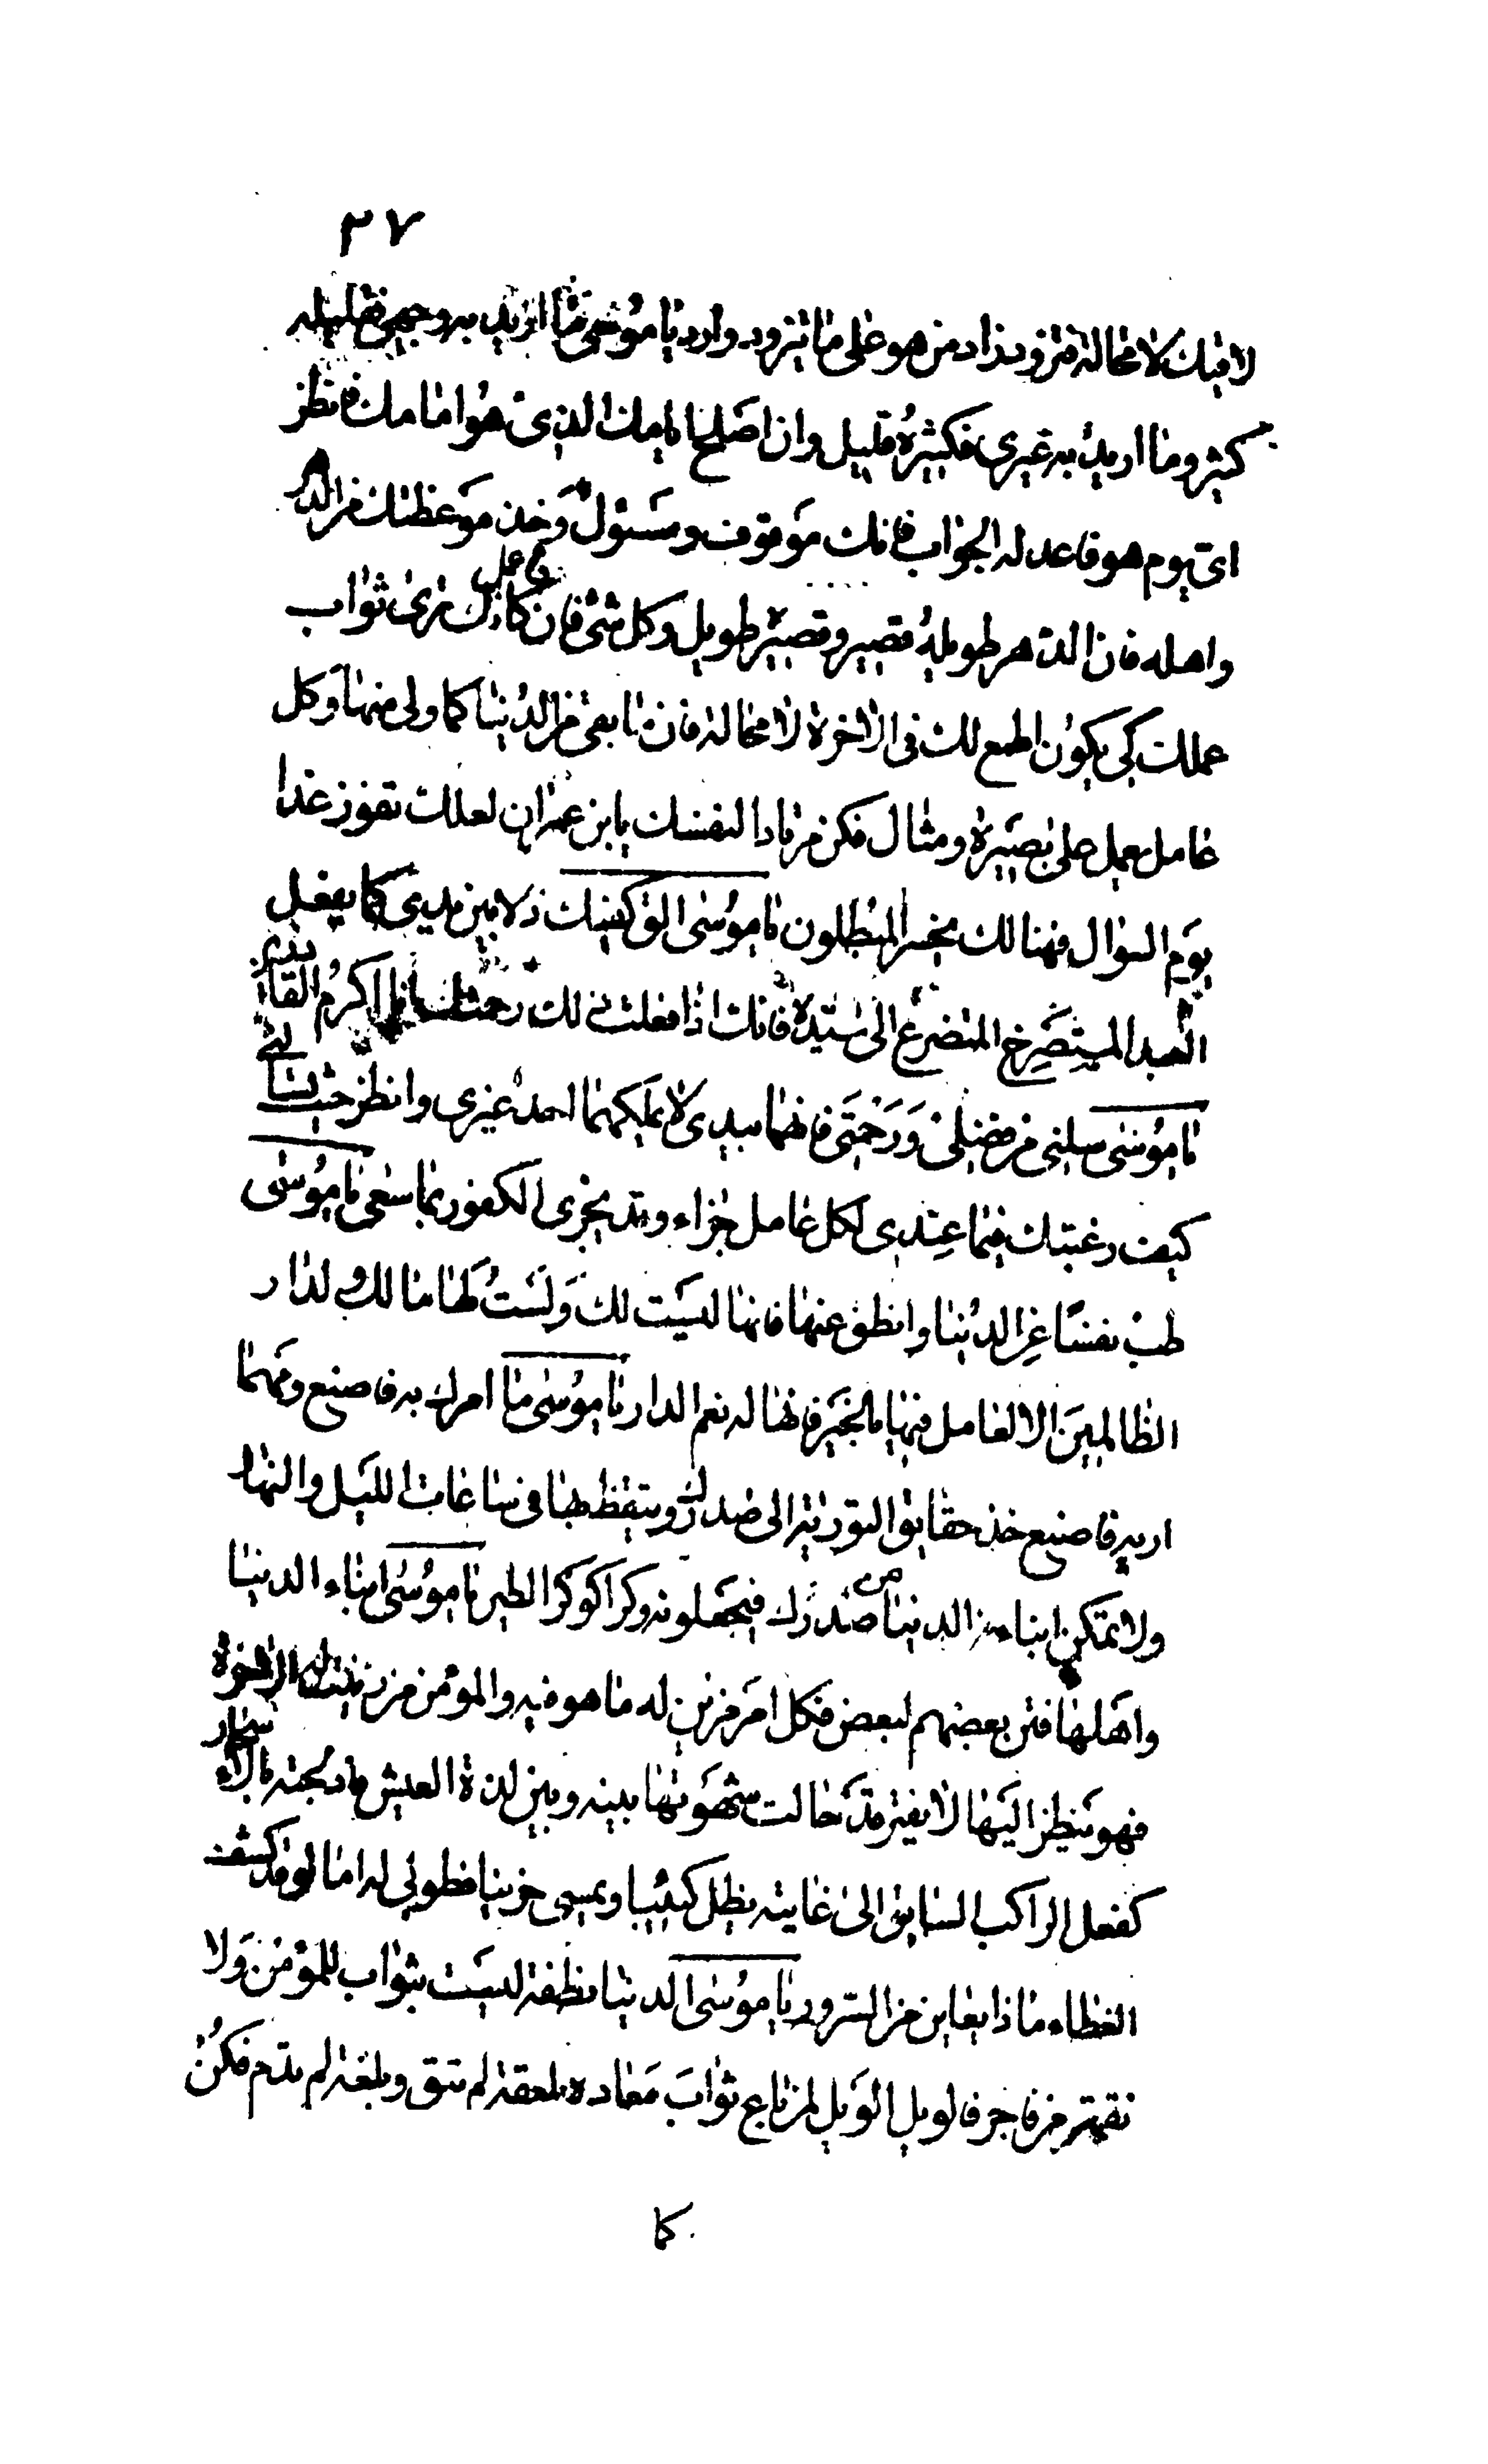 ٣٧
لاقيك لا محالة فتزود زاد من هو على ما يتزود وارد يا موسى ما اريد به وجهي فقليله
كثير وما اريد به غيري فكثيره قليل وان اصلح ايامك الذي هو امامك فانظر
اي يوم هو فاعد له الجواب فانك موقوف ومسئول وخذ موعظتك من الدهر
واهله فان الدهر طويله قصير وقصيره طويل وكل شئ فان فاعمل كانك ترى ثواب
عملك كي يكون اطمع لك في الاخرة لا محالة فان ما بقي من الدنيا كما ولى منها وكل
عامل يعمل على بصيرة ومثال فكن مرتادا لنفسك يا بن عمران لعلك تفوز غدا
يوم السؤال فهنالك يخسر المبطلون يا موسى الق كفيك ذلا بين يدي كما يفعل
العبد المستصرخ المتضرع الى سيده فانك اذا فعلت ذلك رحمتك وانا اكرم القادرين
يا موسى سلني من فضلي ورحمتي فانهما بيدي لا يملكهما احد غيري وانظر حين تسالني
كيف رغبتك فيما عندي لكل عامل جزاء وقد يجزى الكفور بما سعى يا موسى
طب نفسا عن الدنيا وانطو عنها فانها ليست لك ولست لها ما لك ولدار
الظالمين الا لعامل فيها بالخير فانها له نعم الدار يا موسى ما امرك به فاصنع ومهما
اريد فاصنع خذ حقايق التورية الى صدرك وتيقظ بها في ساعات الليل والنهار
ولا تمكن ابناء الدنيا من صدرك فيجعلونه وكرا كوكر الطير يا موسى ابناء الدنيا
واهلها فتن بعضهم لبعض فكل امر مزين له ما هو فيه والمؤمن من زينت له الاخرة
فهو ينظر اليها لا يفتر قد حالت شهوتها بينه وبين لذة العيش فادلجته بالاسحار
كفعل الراكب السابق الى غايته يظل كئيبا ويمسي حزينا فطوبى له اما لو قد كشف
الغطاء ماذا يعاين من السرور يا موسى الدنيا نطفة ليست بثواب للمؤمن ولا
نقمة من فاجر فالويل الويل لمن باع ثواب معاده بلعقة لم تبق وبلغة لم تدم فكن
كما